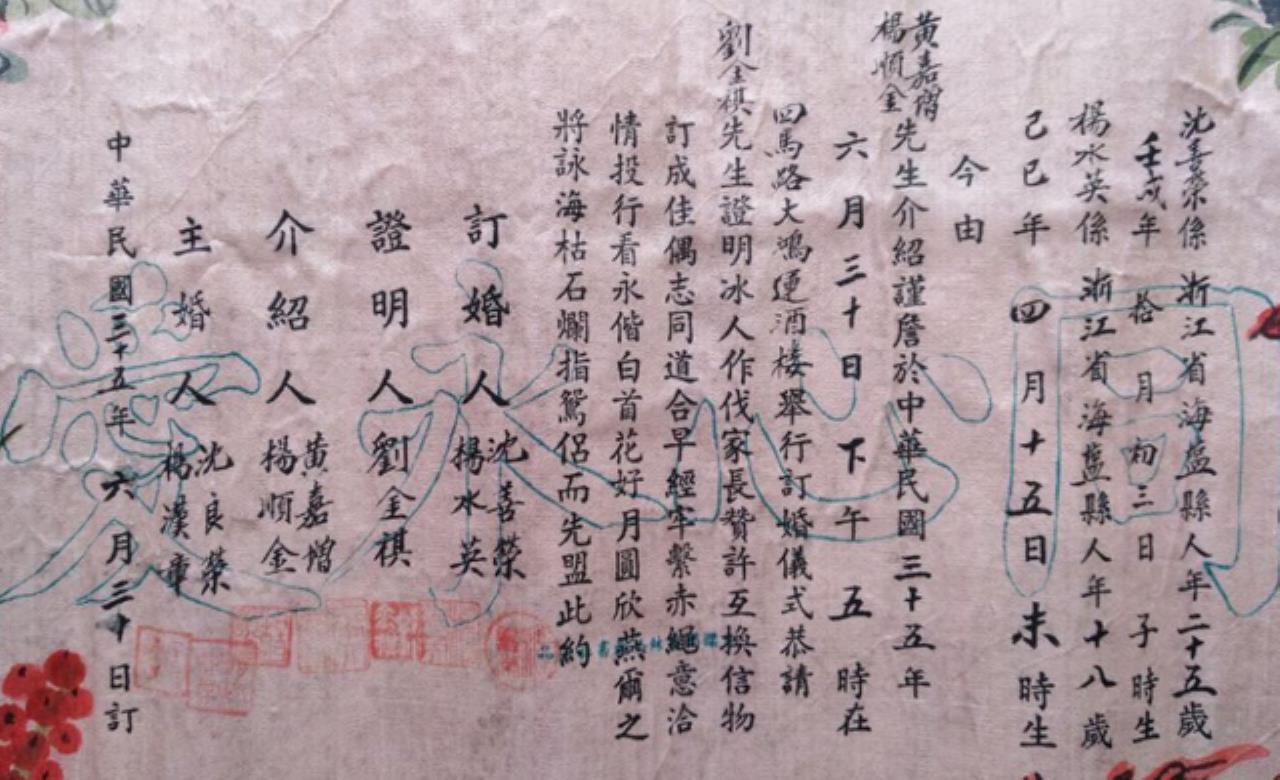 沈喜荣係浙江省海盐縣人年二十五歲
壬戌年拾月初三日子時生
楊水英係浙江省海盐縣人年十八歲
己巳年四月十五日未時生
今由
黄嘉增
楊順金先生介紹謹詹於中華民國三十五年
六月三十日下午五時在
四馬路大鴻運酒楼舉行訂婚儀式恭請
劉金棋先生證明冰人作伐家長贊許互換信物
訂成佳偶志同道合早經牢繫赤繩意洽
情投行看永偕白首花好月圓欣燕爾之
將詠海枯石爛指鴛侣而先盟此約
訂婚人沈喜榮
楊水英
證明人劉金祺
介紹人黄嘉增
楊順金
主婚人沈良榮
楊漢章
中華民國三十五年六月三十日訂
同心永愛